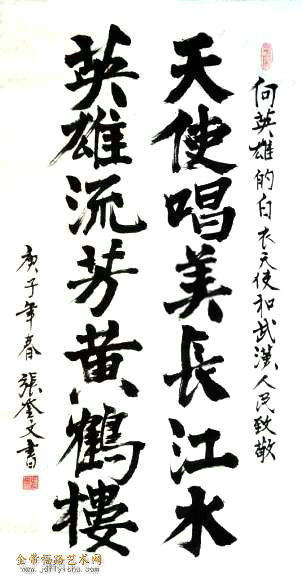 向英雄的白衣天使和武漢人民致敬
天使唱美長江水
英雄流芳黄鶴樓
庚子年春 張奎文書
金带福路艺术网
www.jdflyishu.com